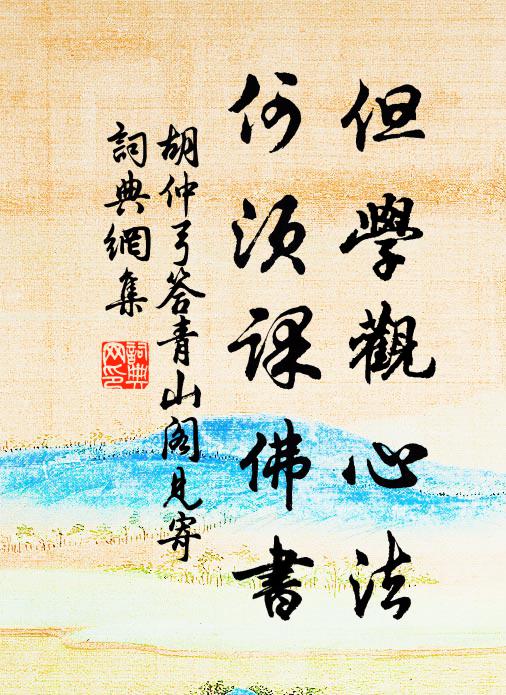 但學觀心法
何須課佛書
胡仲弓答青山閣見寄
詞典網集
詞典
网印